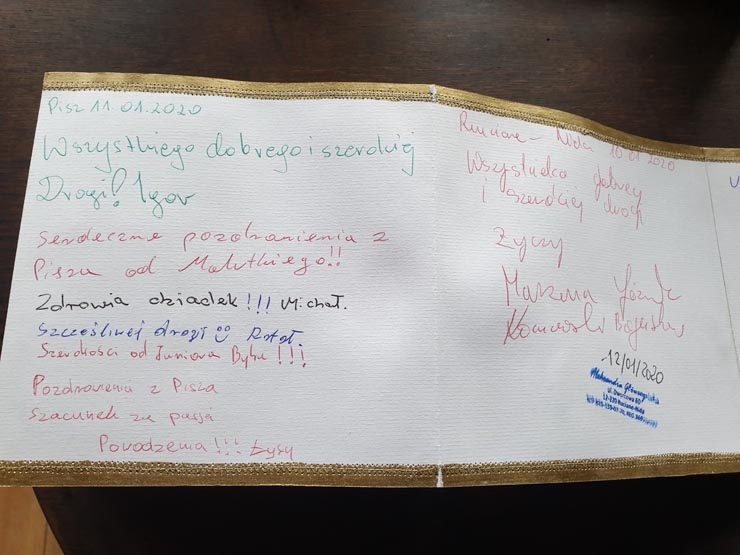 Pisz 11.01.2020
Wszystkiego dobrego i szerokiej
Drogi! Igor
Serdeczne pozdrowienia z
Pisza od Malutkiego!!
Zdrowia dziadek!!! Michał.
Szczęśliwej drogi Rafał.
Szerokości od Juniora Byku!!!
Pozdrowienia z Pisza
Szacunek za pasja
Powodzenia!!! Łysy
Ruciane-Nida 10 01 2020
Wszystkiego dobrego
i szerokiej drogi
Życzy
Marzena Józef
Bogusław
12/01/2020
Aleksandra
ul. Dworcowa
12-220 Ruciane-Nida